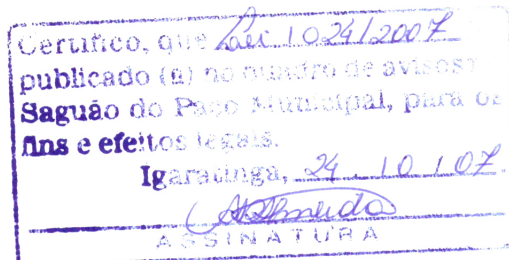 Certifico, que Lei 1024/2007
publicado (a) no quadro de avisos:
Saguão do Paço Municipal, para os
fins e efeitos legais.
Igaratinga, 24 . 10 / 07.
Almeida
ASSINATURA